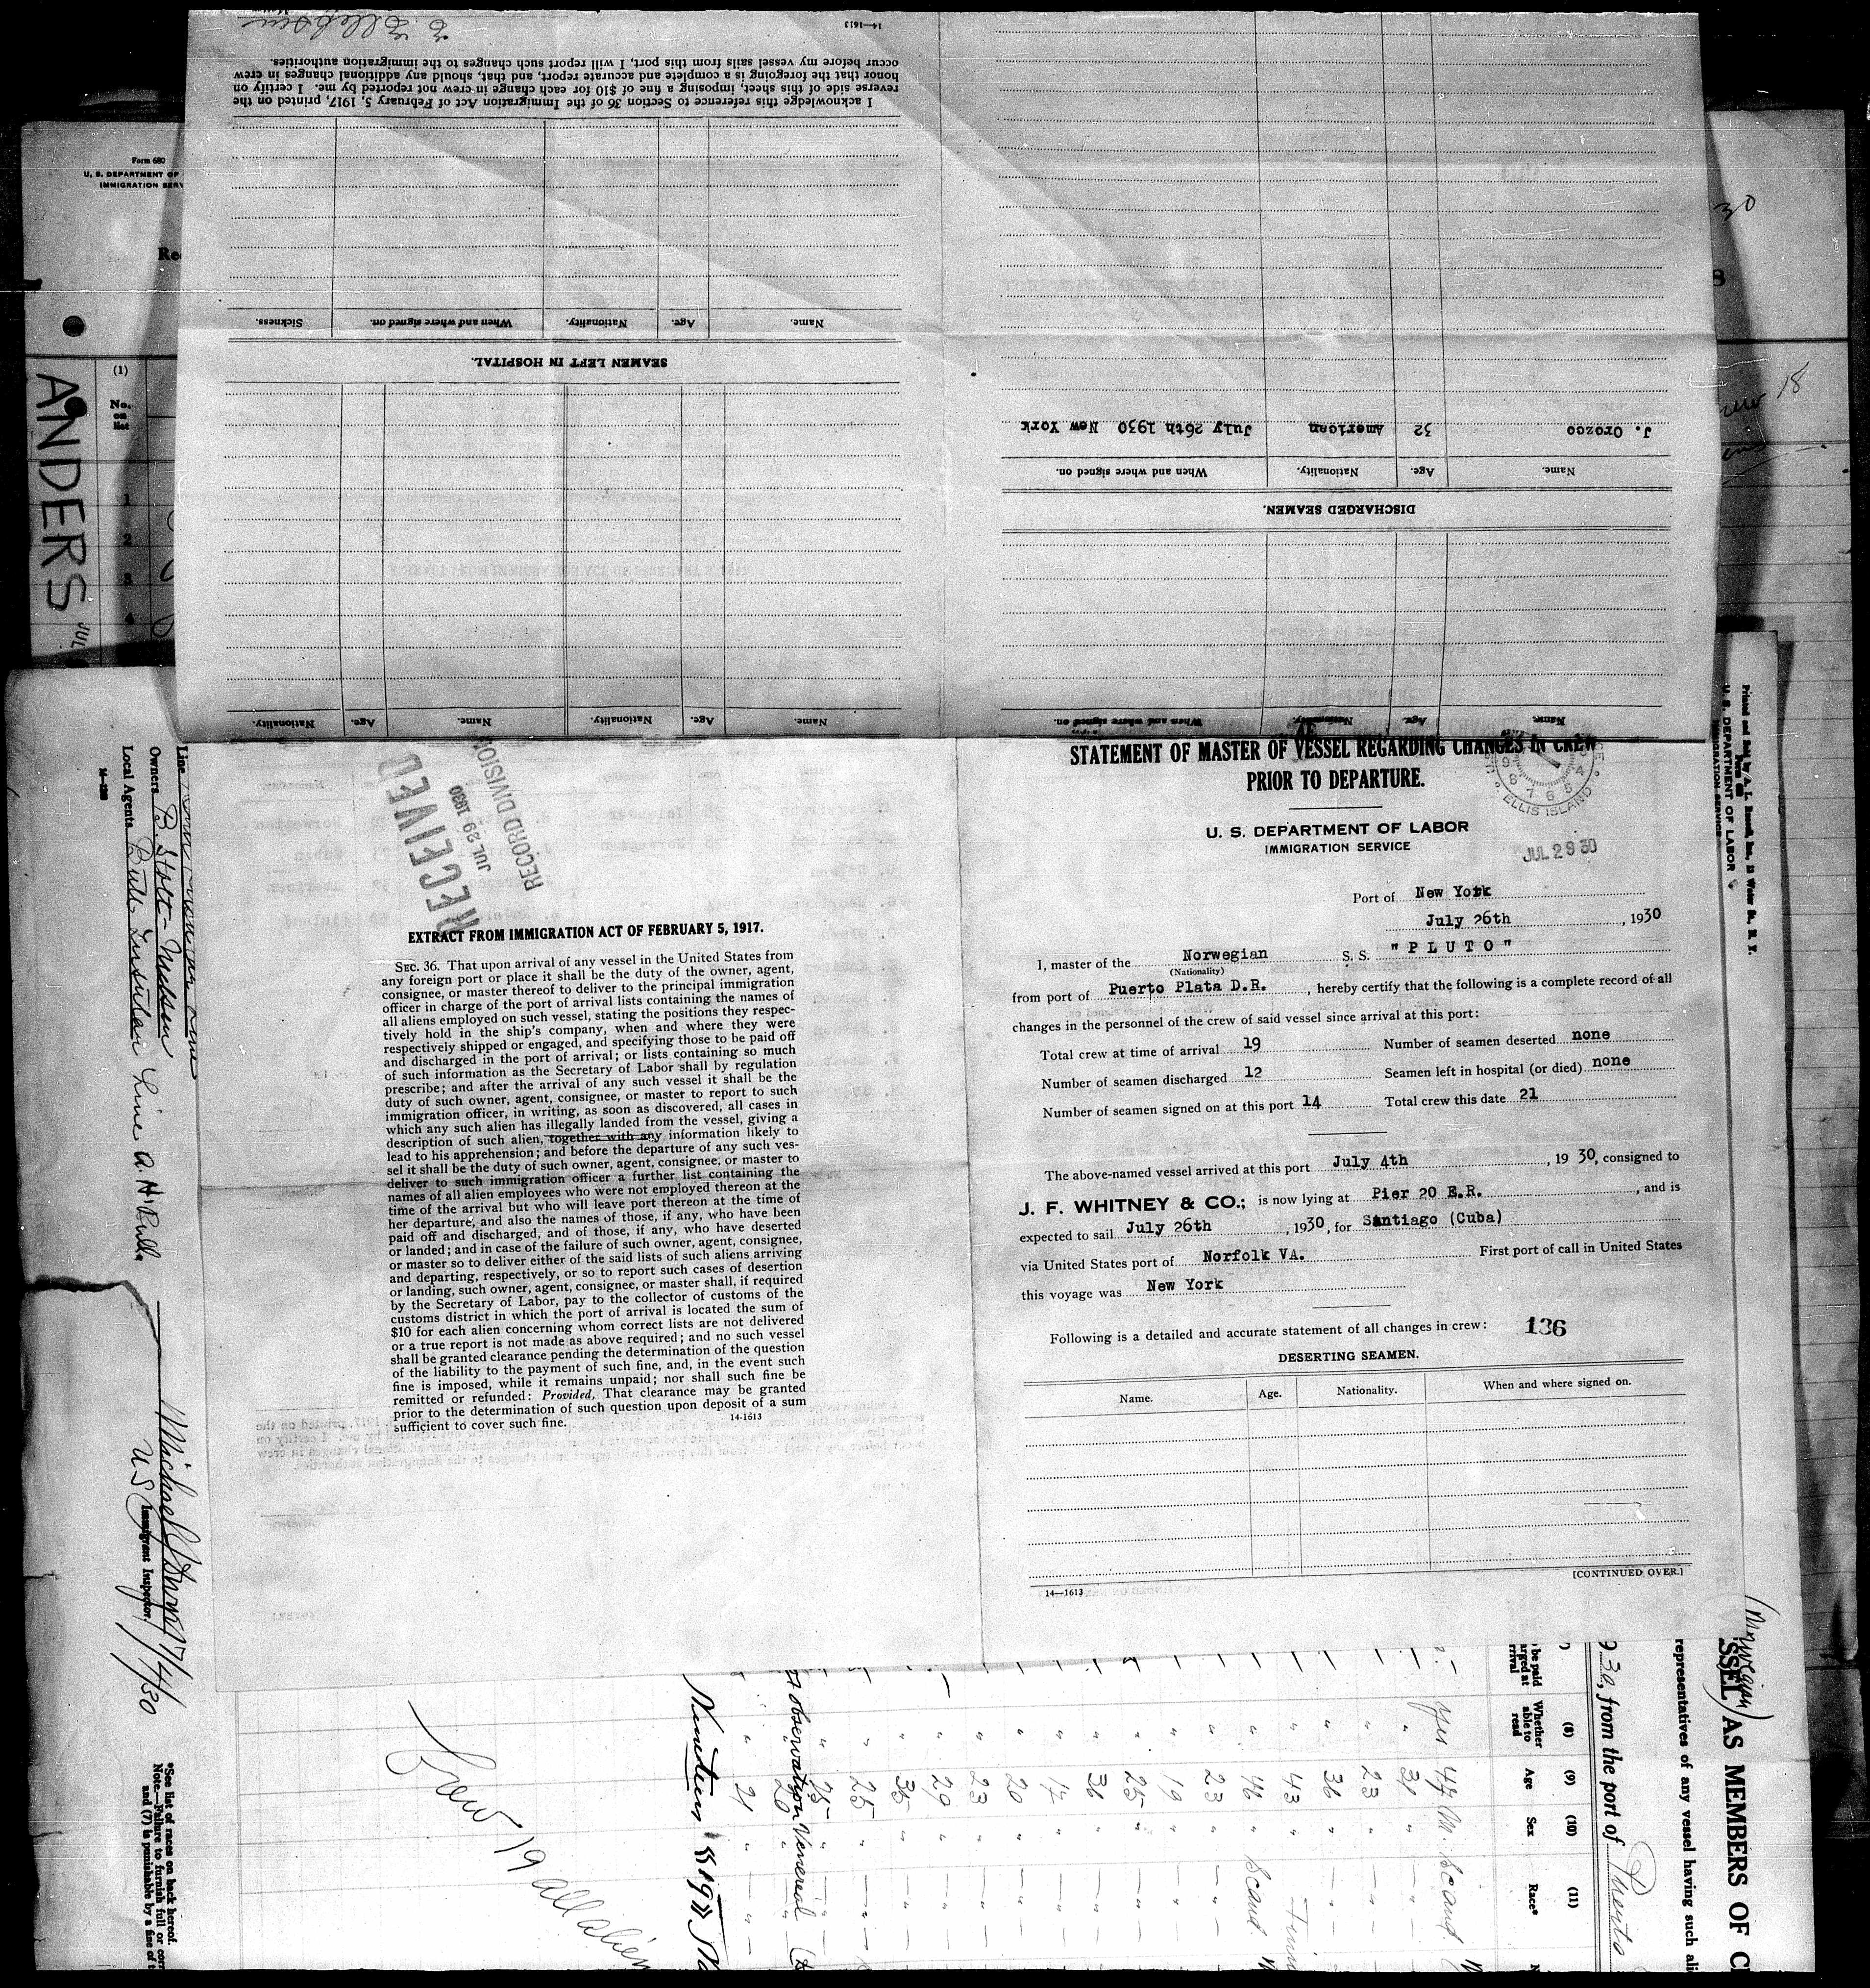 STATEMENT OF MASTER OF VESSEL REGARDING CHANGES IN CREW
PRIOR TO DEPARTURE.
U. S. DEPARTMENT OF LABOR
IMMIGRATION SERVICE
ELLIS ISLAND
JUL 29 30
Port of New York
July 26th, 1930
I, master of the Norwegian S. S. "PLUTO"
(Nationality)
from port of Puerto Plata D.R., hereby certify that the following is a complete record of all
changes in the personnel of the crew of said vessel since arrival at this port:
Total crew at time of arrival 19 Number of seamen deserted none
Number of seamen discharged 12 Seamen left in hospital (or died) none
Number of seamen signed on at this port 14 Total crew this date 21
The above-named vessel arrived at this port July 4th, 19 30, consigned to
J. F. WHITNEY & CO.; is now lying at Pier 20 E.R., and is
expected to sail July 26th, 1930, for Santiago (Cuba)
via United States port of Norfolk VA. First port of call in United States
this voyage was New York
Following is a detailed and accurate statement of all changes in crew: 136
DESERTING SEAMEN.
Name. Age. Nationality. When and where signed on.
[CONTINUED OVER.]
14—1613
RECEIVED
JUL 29 1930
RECORD DIVISION
EXTRACT FROM IMMIGRATION ACT OF FEBRUARY 5, 1917.
SEC. 36. That upon arrival of any vessel in the United States from
any foreign port or place it shall be the duty of the owner, agent,
consignee, or master thereof to deliver to the principal immigration
officer in charge of the port of arrival lists containing the names of
all aliens employed on such vessel, stating the positions they respec-
tively hold in the ship's company, when and where they were
respectively shipped or engaged, and specifying those to be paid off
and discharged in the port of arrival; or lists containing so much
of such information as the Secretary of Labor shall by regulation
prescribe; and after the arrival of any such vessel it shall be the
duty of such owner, agent, consignee, or master to report to such
immigration officer, in writing, as soon as discovered, all cases in
which any such alien has illegally landed from the vessel, giving a
description of such alien, together with any information likely to
lead to his apprehension; and before the departure of any such ves-
sel it shall be the duty of such owner, agent, consignee, or master to
deliver to such immigration officer a further list containing the
names of all alien employees who were not employed thereon at the
time of the arrival but who will leave port thereon at the time of
her departure, and also the names of those, if any, who have been
paid off and discharged, and of those, if any, who have deserted
or landed; and in case of the failure of such owner, agent, consignee,
or master so to deliver either of the said lists of such aliens arriving
and departing, respectively, or so to report such cases of desertion
or landing, such owner, agent, consignee, or master shall, if required
by the Secretary of Labor, pay to the collector of customs of the
customs district in which the port of arrival is located the sum of
$10 for each alien concerning whom correct lists are not delivered
or a true report is not made as above required; and no such vessel
shall be granted clearance pending the determination of the question
of the liability to the payment of such fine, and, in the event such
fine is imposed, while it remains unpaid; nor shall such fine be
remitted or refunded: Provided, That clearance may be granted
prior to the determination of such question upon deposit of a sum
sufficient to cover such fine.
14-1613
Name. Age. Nationality. When and where signed on.
DISCHARGED SEAMEN.
Name. Age. Nationality. When and where signed on.
J. Orozco 32 American July 26th 1930 New York
Name. Age. Nationality. Name. Age. Nationality.
SEAMEN LEFT IN HOSPITAL.
Name. Age. Nationality. When and where signed on. Sickness.
I acknowledge this reference to Section 36 of the Immigration Act of February 5, 1917, printed on the
reverse side of this sheet, imposing a fine of $10 for each change in crew not reported by me. I certify on
honor that the foregoing is a complete and accurate report, and that, should any additional changes in crew
occur before my vessel sails from this port, I will report such changes to the immigration authorities.
14—1613
Form 680
U. S. DEPARTMENT OF
IMMIGRATION SERV
(1)
No.
on
list
1
2
3
4
ANDERS
JUL
30
8
18
Line
Owners B. Stolt-Nielsen
Local Agents Bull Insular Line A. H. Bull
Michael
U S Immigrant Inspector. 7/4/30
*See list of races on back hereof.
Note.—Failure to furnish full or corr
and (7) is punishable by a fine of t
U. S. DEPARTMENT OF LABOR
IMMIGRATION SERVICE
(Norwegian)
SSEL) AS MEMBERS OF C
representatives of any vessel having such ali
930, from the port of Puerto
(8) (9) (10) (11)
Whether able to read Age Sex Race*
yes 44 M. Scand
" 31 "
" 23 "
" 36 "
" 43 "
" 46 " Scand.
" 23 "
" 19 "
" 25 "
" 36 "
" 20 "
" 23 "
" 29 "
" 35 "
" 25 "
" 25 "
" 20 "
" 21 "
Observation Venereal
Nineteen «19»
Crew 19 all aliens